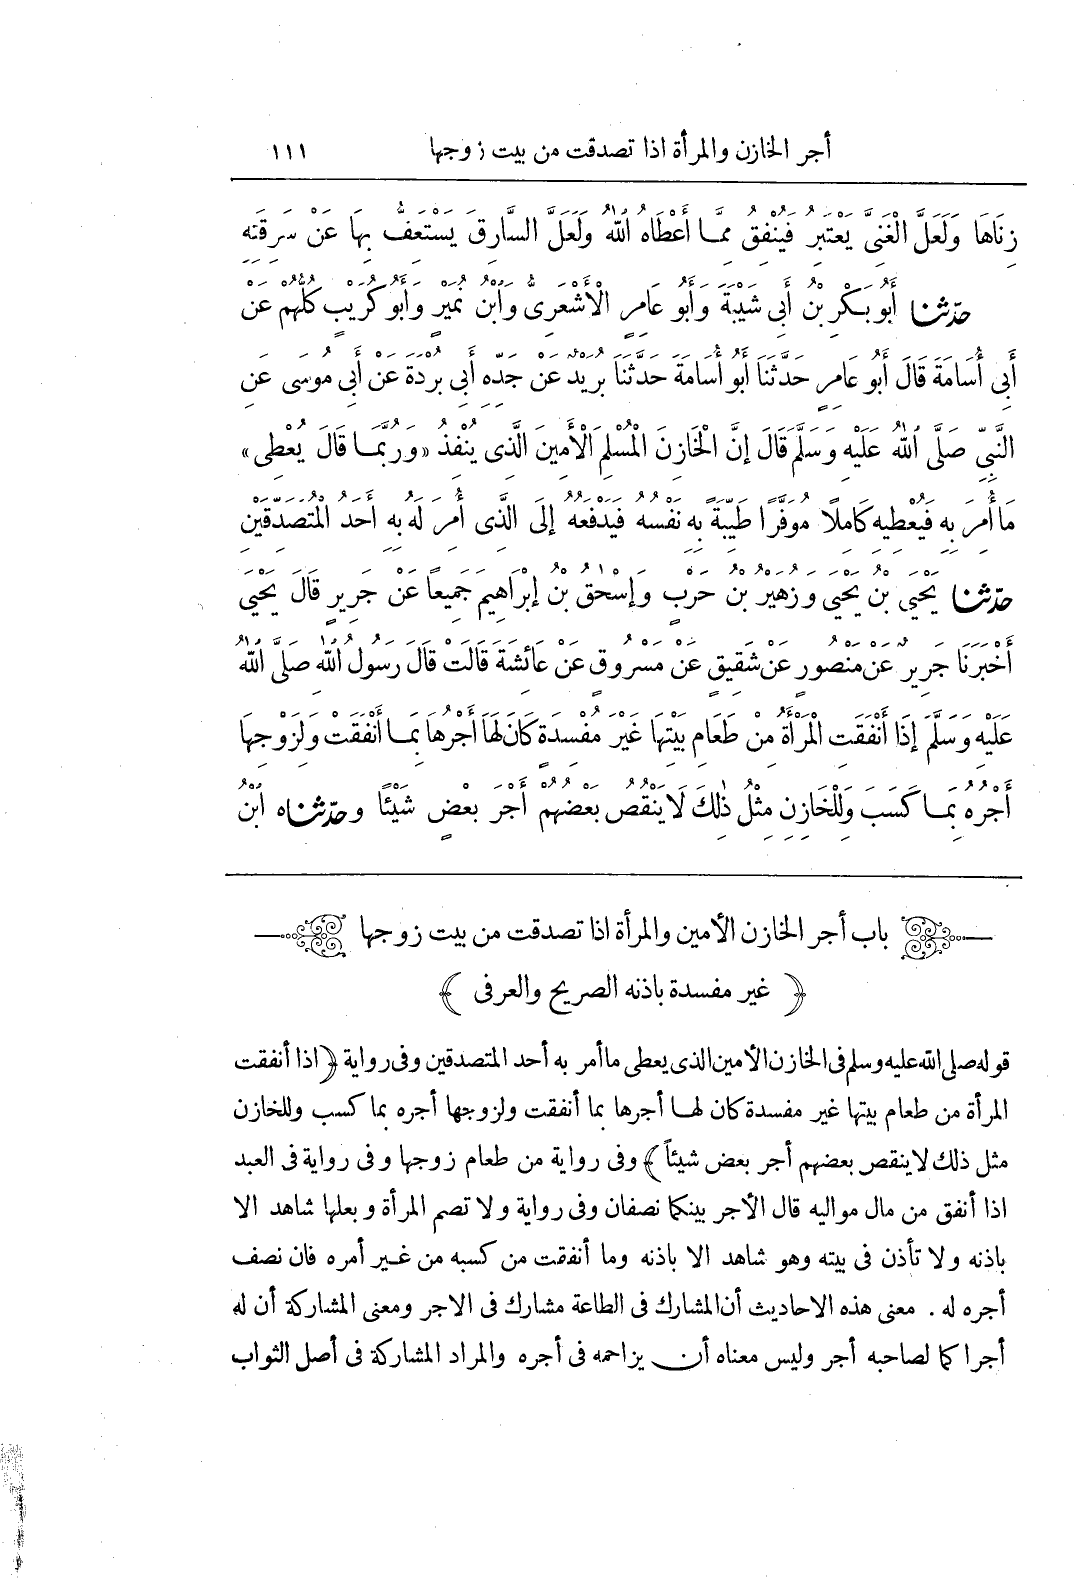 أجر الخازن والمرأة اذا تصدقت من بيت زوجها ١١١
زِنَاهَا وَلَعَلَّ الْغَنِىَّ يَعْتَبِرُ فَيُنْفِقُ مِمَّا أَعْطَاهُ اللهُ وَلَعَلَّ السَّارِقَ يَسْتَعِفُّ بِهَا عَنْ سَرِقَتِهِ
حدّثنا أَبُو بَكْرِ بْنُ أَبِى شَيْبَةَ وَأَبُو عَامِرٍ الْأَشْعَرِىُّ وَابْنُ نُمَيْرٍ وَأَبُو كُرَيْبٍ كُلُّهُمْ عَنْ
أَبِى أُسَامَةَ قَالَ أَبُو عَامِرٍ حَدَّثَنَا أَبُو أُسَامَةَ حَدَّثَنَا بُرَيْدٌ عَنْ جَدِّهِ أَبِى بُرْدَةَ عَنْ أَبِى مُوسَى عَنِ
النَّبِىِّ صَلَّى اللهُ عَلَيْهِ وَسَلَّمَ قَالَ إِنَّ الْخَازِنَ الْمُسْلِمَ الْأَمِينَ الَّذِى يُنْفِذُ «وَرُبَّمَا قَالَ يُعْطِى»
مَا أُمِرَ بِهِ فَيُعْطِيهِ كَامِلًا مُوَفَّرًا طَيِّبَةً بِهِ نَفْسُهُ فَيَدْفَعُهُ إِلَى الَّذِى أُمِرَ لَهُ بِهِ أَحَدُ الْمُتَصَدِّقَيْنِ
حدّثنا يَحْيَى بْنُ يَحْيَى وَزُهَيْرُ بْنُ حَرْبٍ وَإِسْحٰقُ بْنُ إِبْرَاهِيمَ جَمِيعًا عَنْ جَرِيرٍ قَالَ يَحْيَى
أَخْبَرَنَا جَرِيرٌ عَنْ مَنْصُورٍ عَنْ شَقِيقٍ عَنْ مَسْرُوقٍ عَنْ عَائِشَةَ قَالَتْ قَالَ رَسُولُ اللهِ صَلَّى اللهُ
عَلَيْهِ وَسَلَّمَ إِذَا أَنْفَقَتِ الْمَرْأَةُ مِنْ طَعَامِ بَيْتِهَا غَيْرَ مُفْسِدَةٍ كَانَ لَهَا أَجْرُهَا بِمَا أَنْفَقَتْ وَلِزَوْجِهَا
أَجْرُهُ بِمَا كَسَبَ وَلِلْخَازِنِ مِثْلُ ذٰلِكَ لَا يَنْقُصُ بَعْضُهُمْ أَجْرَ بَعْضٍ شَيْئًا وحدّثناه ابْنُ
باب أجر الخازن الأمين والمرأة اذا تصدقت من بيت زوجها
﴿ غير مفسدة باذنه الصريح والعرفى ﴾
قوله صلى الله عليه وسلم فى الخازن الأمين الذى يعطى ما أمر به أحد المتصدقين وفى رواية ﴿اذا أنفقت
المرأة من طعام بيتها غير مفسدة كان لهـا أجرها بما أنفقت ولزوجها أجره بما كسب وللخازن
مثل ذلك لا ينقص بعضهم أجر بعض شيئاً﴾ وفى رواية من طعام زوجها وفى رواية فى العبد
اذا أنفق من مال مواليه قال الأجر بينكما نصفان وفى رواية ولا تصم المرأة وبعلها شاهد الا
باذنه ولا تأذن فى بيته وهو شاهد الا باذنه وما أنفقت من كسبه من غـير أمره فان نصف
أجره له . معنى هذه الاحاديث أن المشارك فى الطاعة مشارك فى الاجر ومعنى المشاركة أن له
أجرا كما لصاحبه أجر وليس معناه أن يزاحمه فى أجره والمراد المشاركة فى أصل الثواب